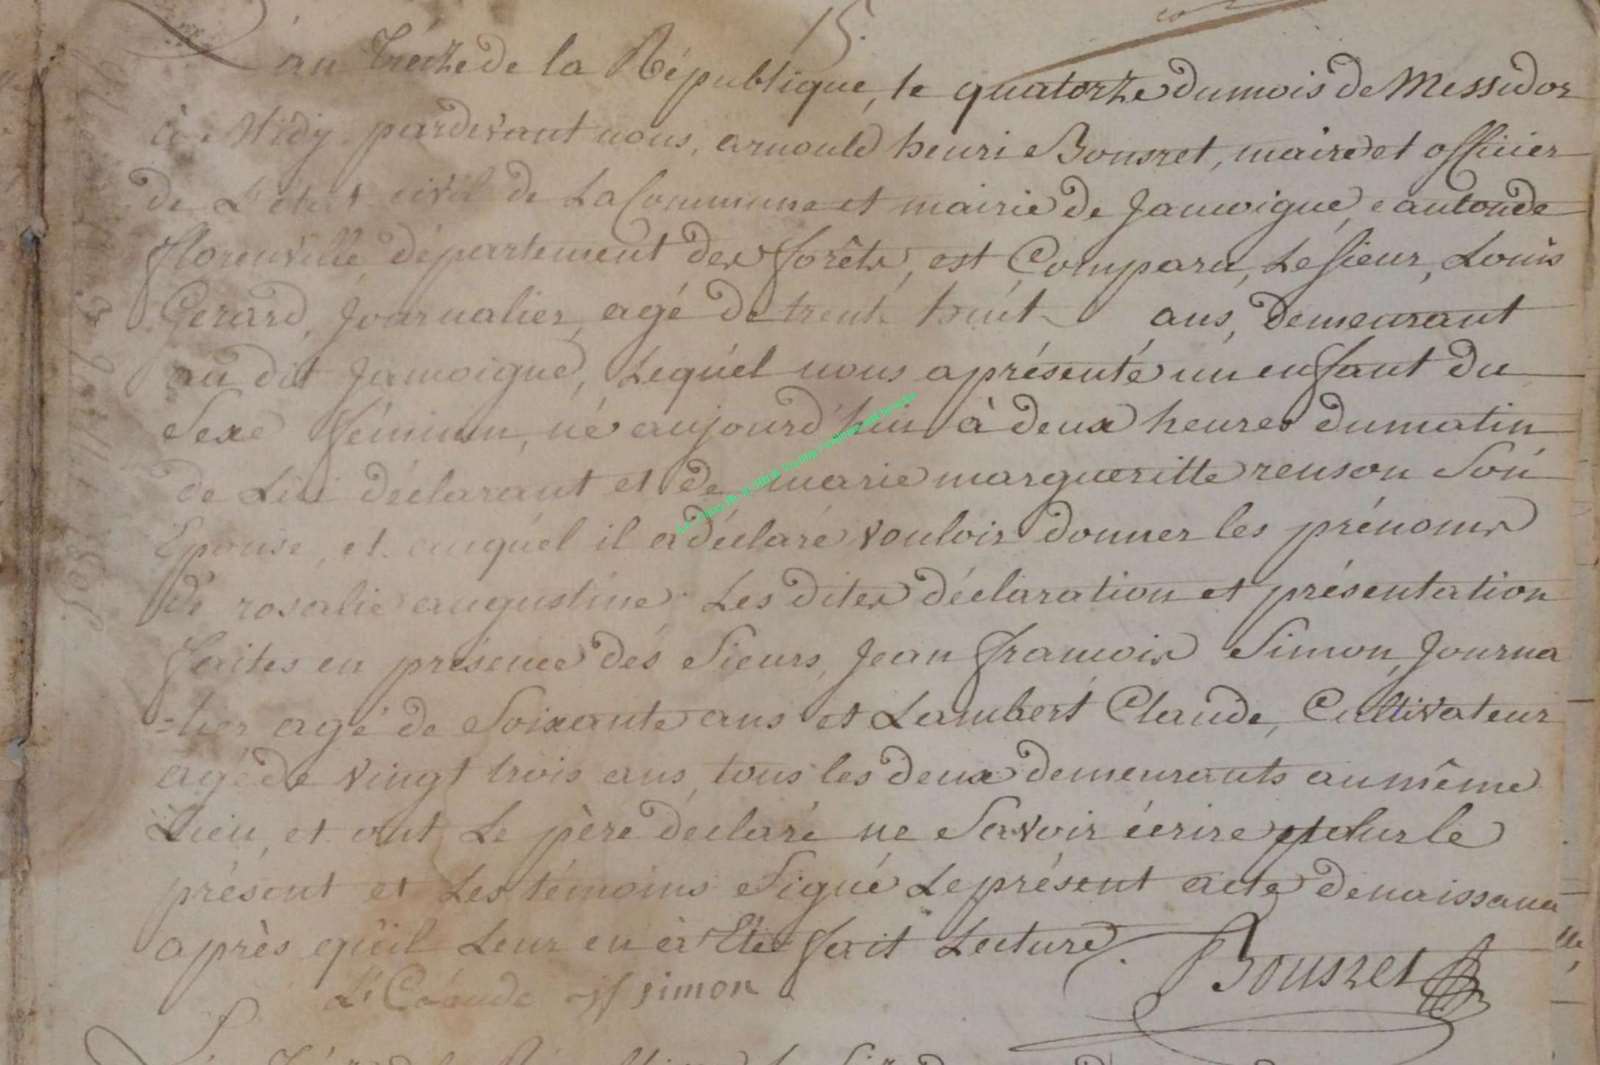 15.
L'an treize de la République, le quatorze du mois de Messidor
à Midy pardevant nous, arnould henri Bonsret, maire et officier
de L'état civil de La Commune et mairie de Jamoigne, canton de
florenville, département des forêts, est Comparu, Le sieur, Louis
Gerard, Journalier, agé de trente huit ans, demeurant
au dit Jamoigne, Lequel nous a présenté un enfant du
Sexe féminin, né aujourd'hui à deux heures du matin
de Lui déclarant et de marie margueritte renson Son
Epouse, et auquel il a déclaré vouloir donner les prénoms
de rosalie augustine Les dites déclaration et présentation
faites en présence des Sieurs, Jean françois Simon, Journa
-lier agé de Soixante ans et Lambert Claude, Cultivateur
agé de vingt trois ans, tous les deux demeurants au même
Lieu, et ont Le père déclaré ne Savoir écrire le
présent et Les témoins Signé Le présent acte de naissance
après qu'il Leur en à Eté fait Lecture.
L. Claude jf simon
Bonsret